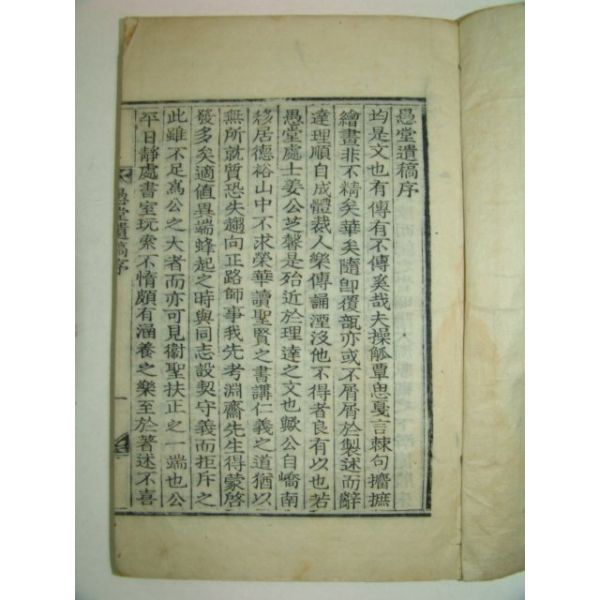 愚堂遺稿序
均是文也有傳有不傳奚哉夫操觚覃思戛言棘句擒摭
繪畫非不精矣華矣隨卽覆瓿亦或不屑屑於製述而辭
達理順自成體裁人樂傳誦湮沒他不得者良有以也若
愚堂處士姜公芝馨是殆近於理達之文也歟公自嶠南
移居德裕山中不求榮華讀聖賢之書講仁義之道猶以
無所就質恐失趨向正路師事我先考淵齋先生得蒙啓
發多矣適値異端蜂起之時與同志設契守義而拒斥之
此雖不足爲公之大者而亦可見衛聖扶正之一端也公
平日靜處書室玩索不惰頗有涵養之樂至於著述不喜
愚堂遺稿序
一